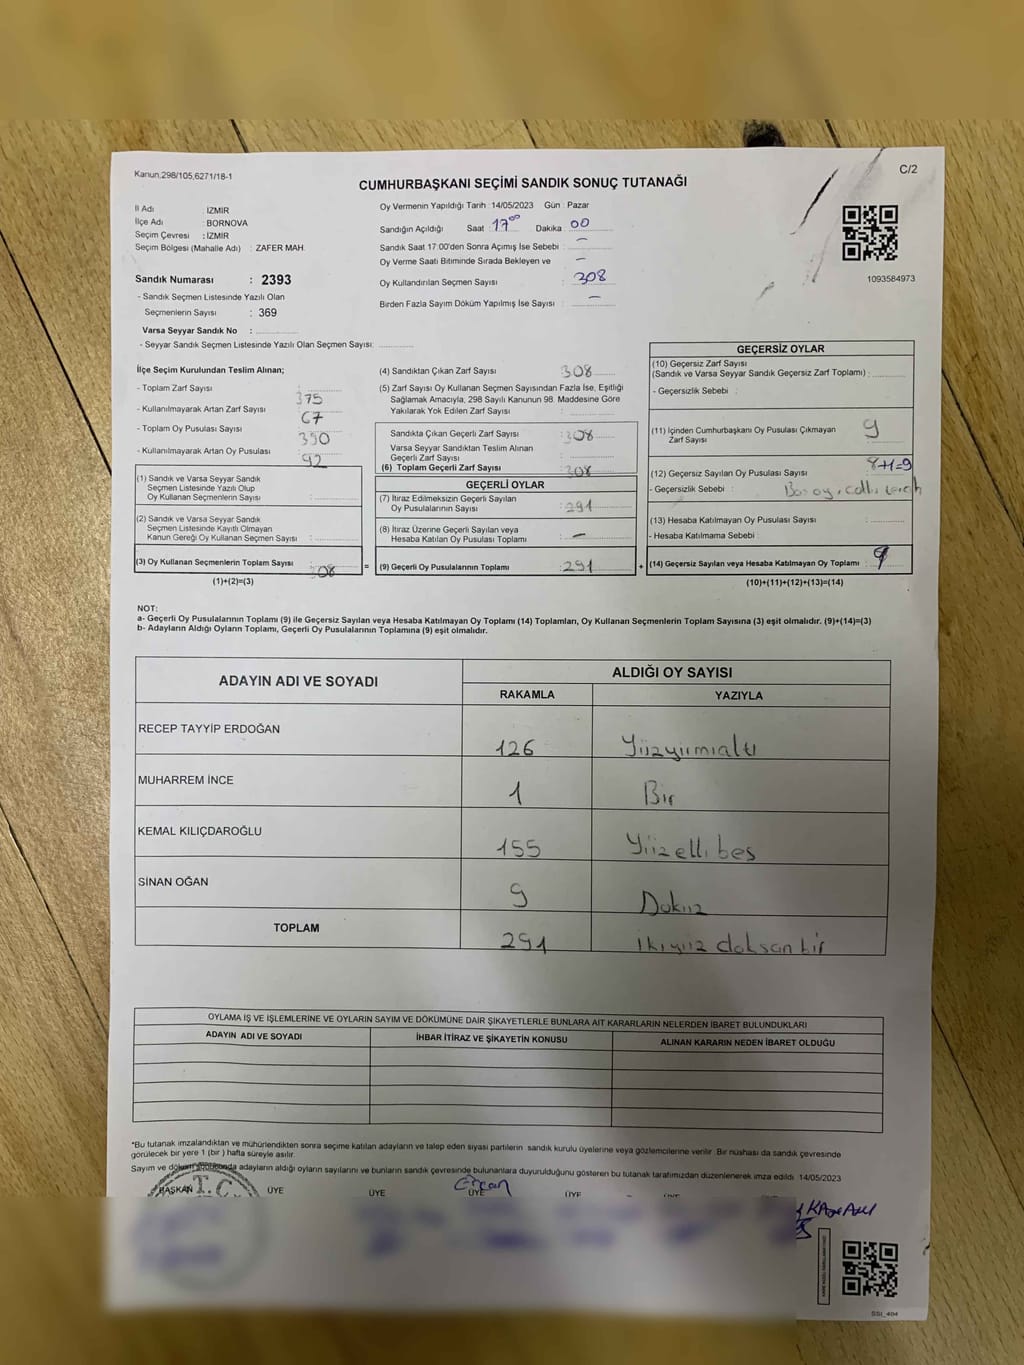 Kanun,298/105,6271/18-1
C/2
CUMHURBAŞKANI SEÇİMİ SANDIK SONUÇ TUTANAĞI
İl Adı : İZMİR
İlçe Adı : BORNOVA
Seçim Çevresi : İZMİR
Seçim Bölgesi (Mahalle Adı) : ZAFER MAH.
Sandık Numarası : 2393
- Sandık Seçmen Listesinde Yazılı Olan
Seçmenlerin Sayısı : 369
Varsa Seyyar Sandık No :
- Seyyar Sandık Seçmen Listesinde Yazılı Olan Seçmen Sayısı:
Oy Vermenin Yapıldığı Tarih : 14/05/2023 Gün : Pazar
Sandığın Açıldığı Saat : 17⁰⁰ Dakika 00
Sandık Saat 17:00'den Sonra Açımış İse Sebebi : –
Oy Verme Saati Bitiminde Sırada Bekleyen ve –
Oy Kullandırılan Seçmen Sayısı : 308
Birden Fazla Sayım Döküm Yapılmış İse Sayısı : –
1093584973
İlçe Seçim Kurulundan Teslim Alınan;
- Toplam Zarf Sayısı : 375
- Kullanılmayarak Artan Zarf Sayısı : 67
- Toplam Oy Pusulası Sayısı : 390
- Kullanılmayarak Artan Oy Pusulası : 92
(1) Sandık ve Varsa Seyyar Sandık
Seçmen Listesinde Yazılı Olup
Oy Kullanan Seçmenlerin Sayısı :
(2) Sandık ve Varsa Seyyar Sandık
Seçmen Listesinde Kayıtlı Olmayan
Kanun Gereği Oy Kullanan Seçmen Sayısı :
(3) Oy Kullanan Seçmenlerin Toplam Sayısı : 308
(1)+(2)=(3)
=
(4) Sandıktan Çıkan Zarf Sayısı : 308
(5) Zarf Sayısı Oy Kullanan Seçmen Sayısından Fazla İse, Eşitliği
Sağlamak Amacıyla, 298 Sayılı Kanunun 98. Maddesine Göre
Yakılarak Yok Edilen Zarf Sayısı :
Sandıkta Çıkan Geçerli Zarf Sayısı : 308
Varsa Seyyar Sandıktan Teslim Alınan
Geçerli Zarf Sayısı :
(6) Toplam Geçerli Zarf Sayısı : 308
GEÇERLİ OYLAR
(7) İtiraz Edilmeksizin Geçerli Sayılan
Oy Pusulalarının Sayısı : 291
(8) İtiraz Üzerine Geçerli Sayılan veya
Hesaba Katılan Oy Pusulası Toplamı : –
(9) Geçerli Oy Pusulalarının Toplamı : 291
+
GEÇERSİZ OYLAR
(10) Geçersiz Zarf Sayısı
(Sandık ve Varsa Seyyar Sandık Geçersiz Zarf Toplamı) :
- Geçersizlik Sebebi :
(11) İçinden Cumhurbaşkanı Oy Pusulası Çıkmayan
Zarf Sayısı : 9
(12) Geçersiz Sayılan Oy Pusulası Sayısı : 8+1=9
- Geçersizlik Sebebi : Boş oy,
(13) Hesaba Katılmayan Oy Pusulası Sayısı :
- Hesaba Katılmama Sebebi :
(14) Geçersiz Sayılan veya Hesaba Katılmayan Oy Toplamı : 9
(10)+(11)+(12)+(13)=(14)
NOT:
a- Geçerli Oy Pusulalarının Toplamı (9) ile Geçersiz Sayılan veya Hesaba Katılmayan Oy Toplamı (14) Toplamları, Oy Kullanan Seçmenlerin Toplam Sayısına (3) eşit olmalıdır. (9)+(14)=(3)
b- Adayların Aldığı Oyların Toplamı, Geçerli Oy Pusulalarının Toplamına (9) eşit olmalıdır.
ADAYIN ADI VE SOYADI
ALDIĞI OY SAYISI
RAKAMLA YAZIYLA
RECEP TAYYİP ERDOĞAN 126 Yüzyirmialtı
MUHARREM İNCE 1 Bir
KEMAL KILIÇDAROĞLU 155 Yüzellibeş
SİNAN OĞAN 9 Dokuz
TOPLAM 291 ikiyüz doksan bir
OYLAMA İŞ VE İŞLEMLERİNE VE OYLARIN SAYIM VE DÖKÜMÜNE DAİR ŞİKAYETLERLE BUNLARA AİT KARARLARIN NELERDEN İBARET BULUNDUKLARI
ADAYIN ADI VE SOYADI İHBAR İTİRAZ VE ŞİKAYETİN KONUSU ALINAN KARARIN NEDEN İBARET OLDUĞU
*Bu tutanak imzalandıktan ve mühürlendikten sonra seçime katılan adayların ve talep eden siyasi partilerin sandık kurulu üyelerine veya gözlemcilerine verilir. Bir nüshası da sandık çevresinde
görülecek bir yere 1 (bir) hafta süreyle asılır.
Sayım ve döküm sonucunda adayların aldığı oyların sayılarını ve bunların sandık çevresinde bulunanlara duyurulduğunu gösteren bu tutanak tarafımızdan düzenlenerek imza edildi. 14/05/2023
BAŞKAN T.C. ÜYE ÜYE Ercan ÜYE ÜYE ÜYE
SSI_404